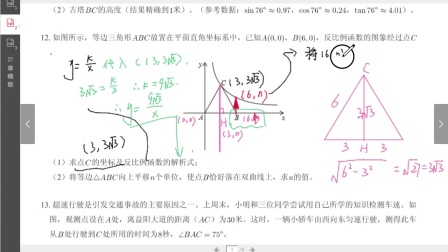 （2）古塔BC的高度（结果精确到1米）。（参考数据：sin76°≈0.97，cos76°≈0.24，tan76°≈4.01）。
12. 如图所示，等边三角形ABC放置在平面直角坐标系中，已知A(0,0)，B(6,0)，反比例函数的图象经过点C
y=k/x 代入 C(3,3√3)
3√3=k/3 ∴k=9√3
∴y=9√3/x
(3,3√3)
y
C(3,3√3)
(6,n)
A
B
H
x
(0,0)
(3,0)
C
6
3√3
3 H 3
√6²-3² =√27=3√3
（1）求点C的坐标及反比例函数的解析式；
（2）将等边△ABC向上平移n个单位，使点B恰好落在双曲线上，求n的值。
13. 超速行驶是引发交通事故的主要原因之一。上周末，小明和三位同学尝试用自己所学的知识检测车速。如
图，观测点设在A处，离益阳大道的距离（AC）为30米。这时，一辆小轿车由西向东匀速行驶，测得此车
从B处行驶到C处所用的时间为8秒，∠BAC=75°。